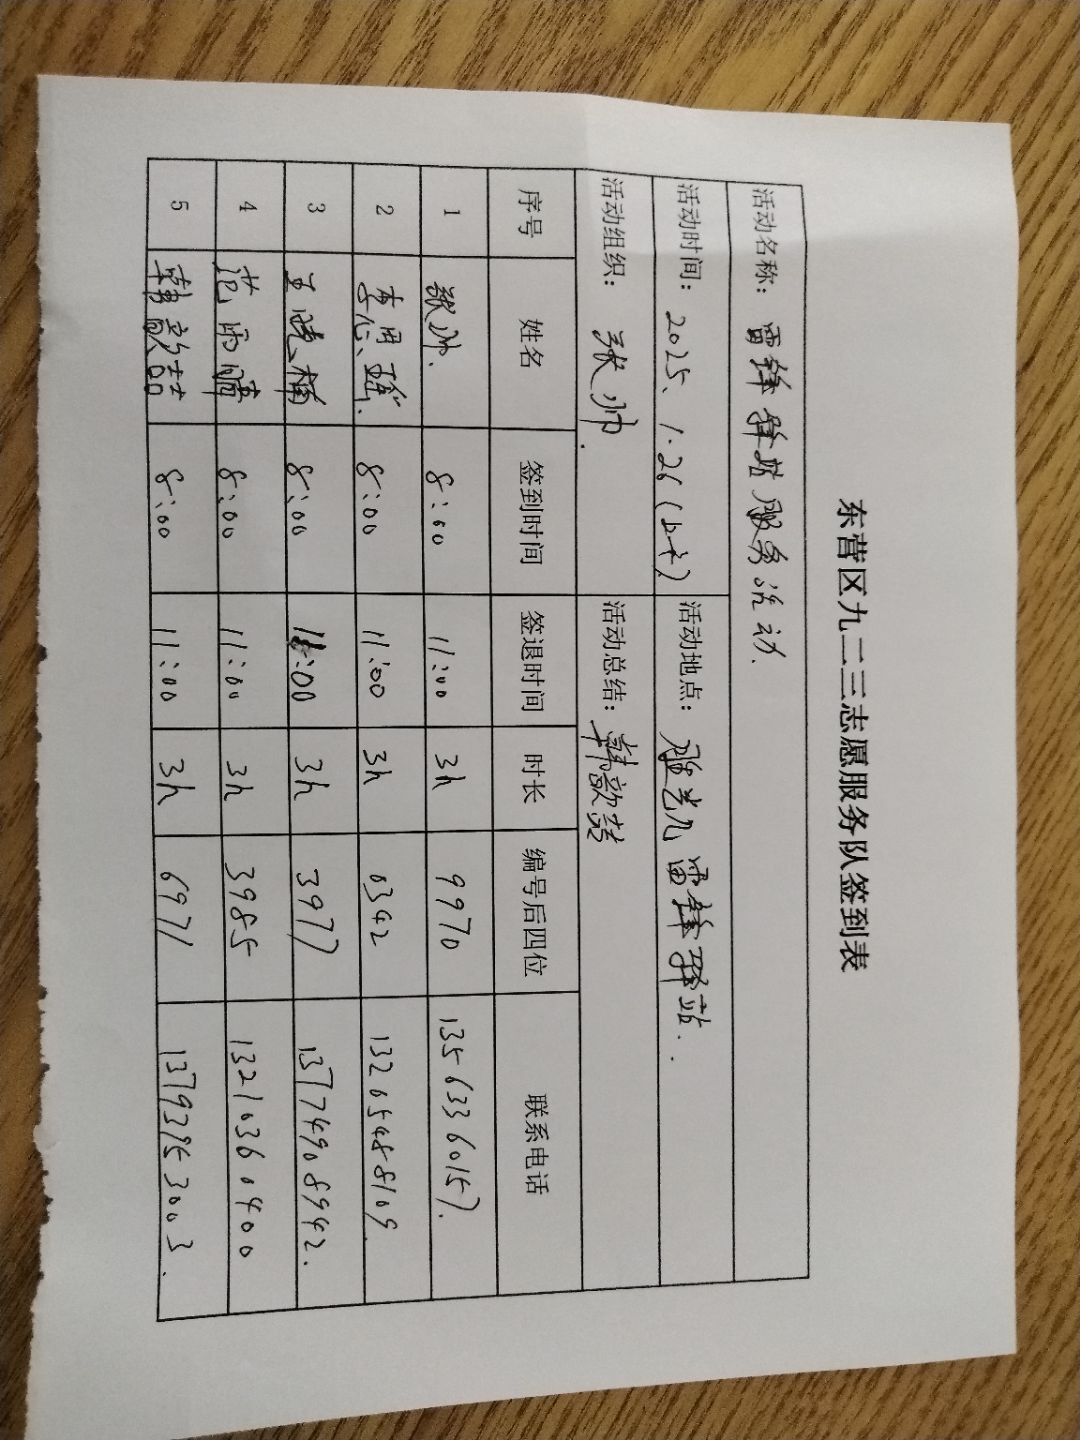 东营区九二三志愿服务队签到表
活动名称: 雷锋驿站服务活动.
活动时间: 2025、1.26(上午) 活动地点: 胜兴雷锋驿站..
活动组织: 张帅. 活动总结: 韩歆喆
序号 姓名 签到时间 签退时间 时长 编号后四位 联系电话
1 张帅. 8:00 11:00 3h 9970 13563360157.
2 8:00 11:00 3h 0342 13205488109
3 王晓楠 8:00 11:00 3h 3977 13774908942.
4 范雨晴 8:00 11:00 3h 3985 13210360400
5 韩歆喆 8:00 11:00 3h 6971 13793953003.